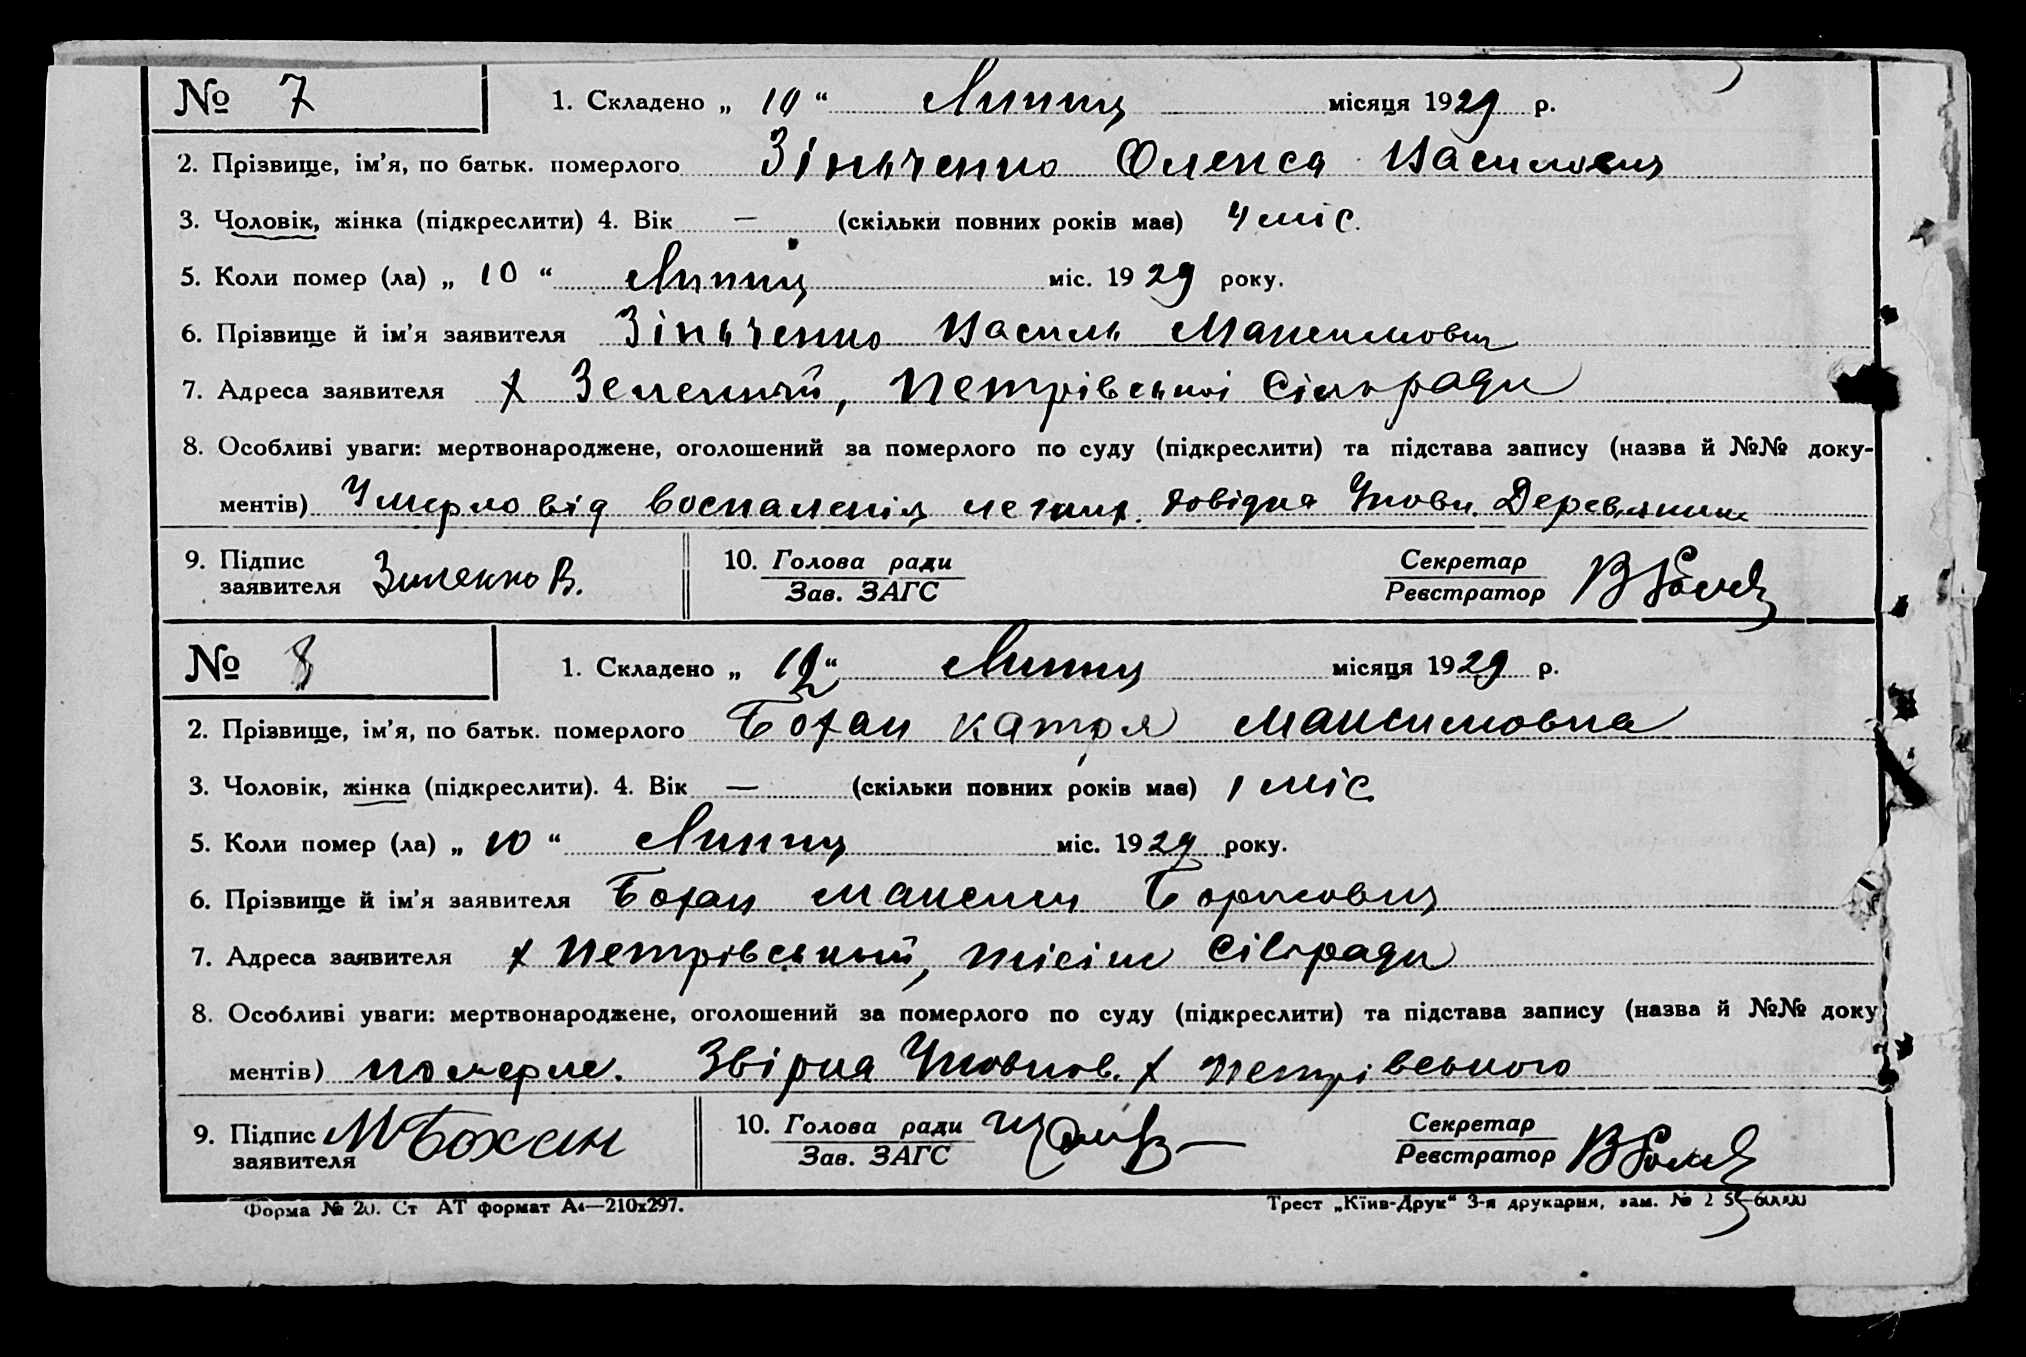 № 7 1. Складено „ 10 “ Липця місяця 1929 р.
2. Прізвище, ім’я, по батьк. померлого Зінченко Олекса Васильович
3. Чоловік, жінка (підкреслити) 4. Вік — (скільки повних років має) 4 міс.
5. Коли помер (ла) „ 10 “ Липця міс. 1929 року.
6. Прізвище й ім’я заявителя Зінченко Василь Максимович
7. Адреса заявителя х Зелений, Петрівської Сільради
8. Особливі уваги: мертвонароджене, оголошений за померлого по суду (підкреслити) та підстава запису (назва й №№ доку-
ментів) Умерло від воспаленія легких. довідка Уповн.
9. Підпис заявителя В. 10. Голова ради Зав. ЗАГС Секретар Реєстратор
№ 8 1. Складено „ “ Липця місяця 1929 р.
2. Прізвище, ім’я, по батьк. померлого Бохан Катря Максимовна
3. Чоловік, жінка (підкреслити). 4. Вік — (скільки повних років має) 1 міс.
5. Коли помер (ла) „ 10 “ Липця міс. 1929 року.
6. Прізвище й ім’я заявителя Бохан Максим Борисович
7. Адреса заявителя х Петрівський, Сільради
8. Особливі уваги: мертвонароджене, оголошений за померлого по суду (підкреслити) та підстава запису (назва й №№ доку
ментів) померле. Уповнов. х Петрівського
9. Підпис заявителя М Бохан 10. Голова ради Зав. ЗАГС Секретар Реєстратор
Форма № 20. Ст АТ формат А4—210х297. Трест „Київ-Друк“ 3-я друкарня, зам. №